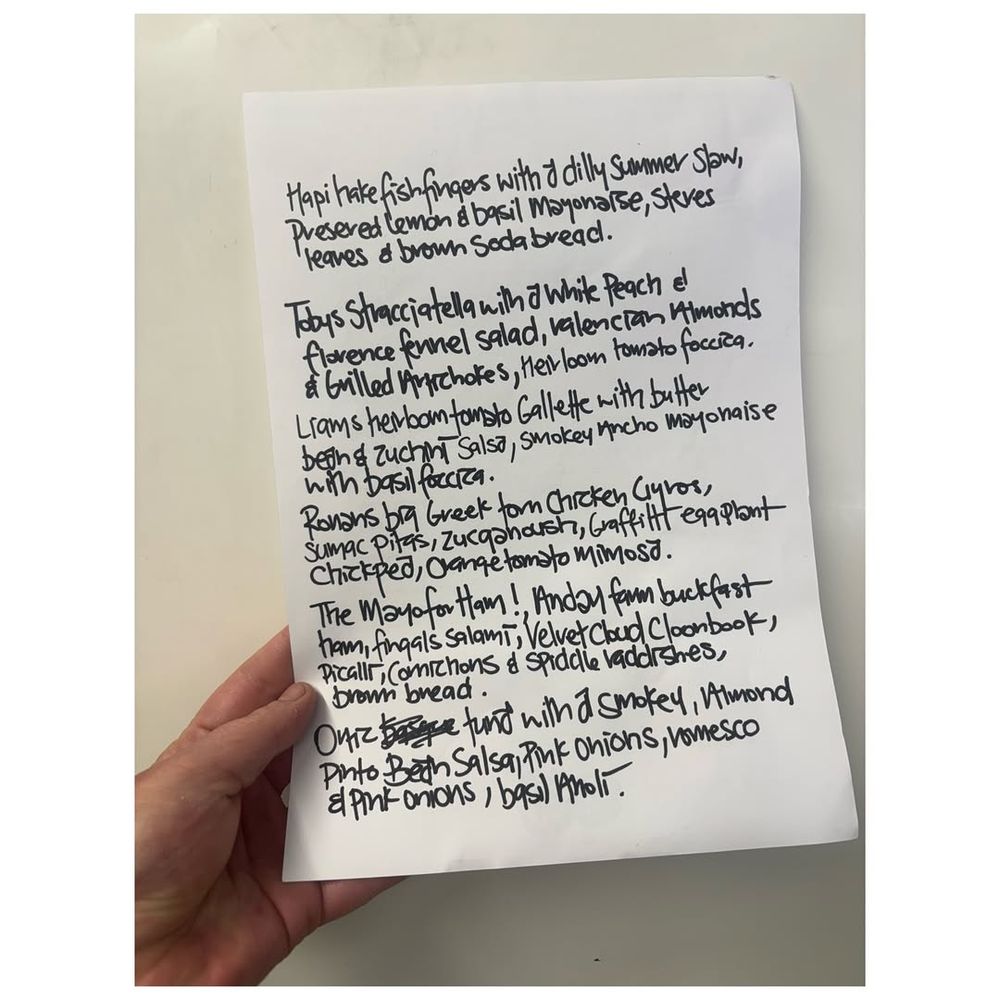 Hapi hake fishfingers with a dilly Summer Slaw,
Presered lemon & basil Mayonaise, Steves
leaves & brown Soda bread.
Tobys Stracciatella with a White Peach &
florence fennel salad, valencian Almonds
& Grilled Artichokes, Heirloom tomato foccica.
Liams heirloom tomato Gallette with butter
bean & zuchini Salsa, smokey Ancho Mayonaise
with basil foccica.
Ronans big Greek torn Chicken Gyros,
sumac pitas, zucqanoush, Graffitti eggplant
Chickpea, Orange tomato mimosa.
The Mayo for Ham!, Anday farm buckfast
ham, fingals salami, Velvet Cloud Cloonbook,
Picalli, Cornichons & spiddle raddishes,
brown bread.
Ortiz tuna with a smokey, Almond
pinto Bean Salsa, Pink Onions, romesco
& Pink onions, basil Anoli.